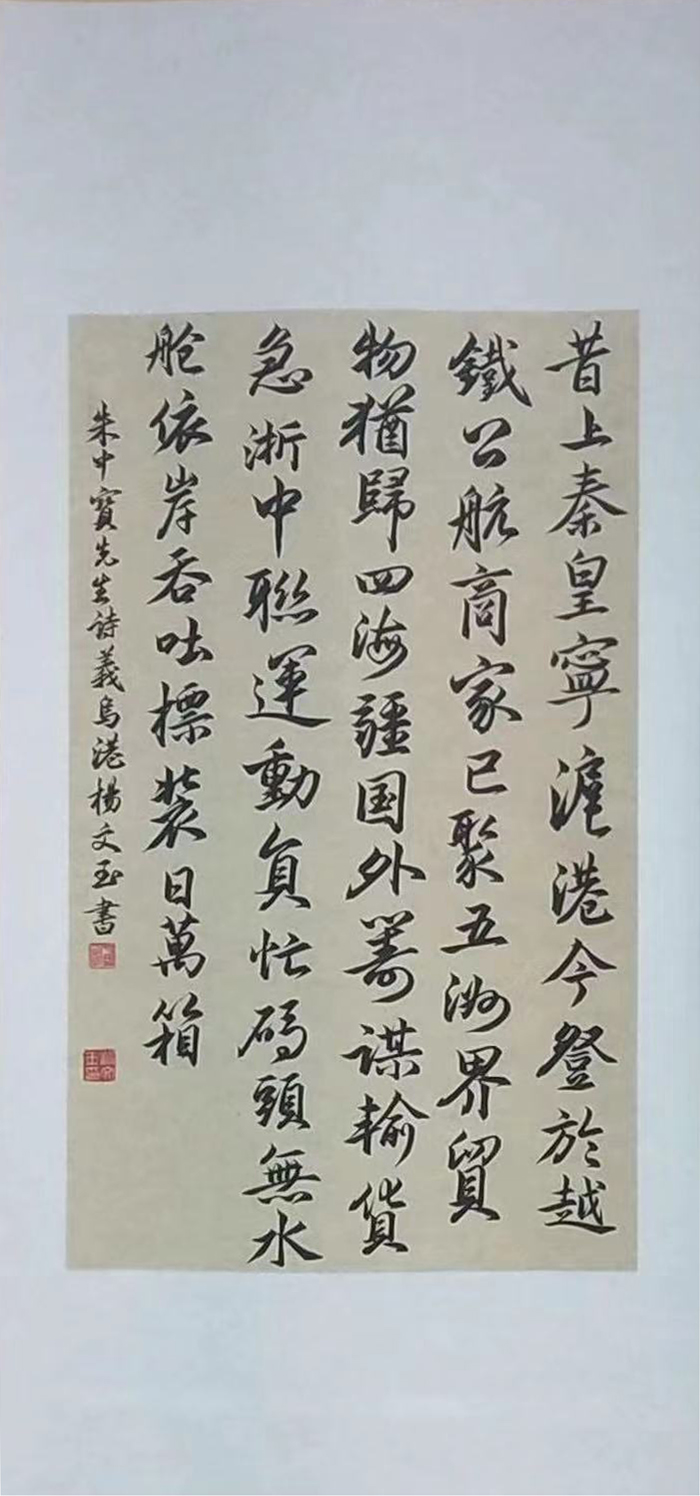 昔上秦皇寧滬港今登於越
鐵公航商家已聚五洲界貿
物猶歸四海疆国外籌謀輸貨
急浙中聯運動員忙碼頭無水
舱依岸吞吐標装日萬箱
朱中寶先生詩義烏港楊文玉書